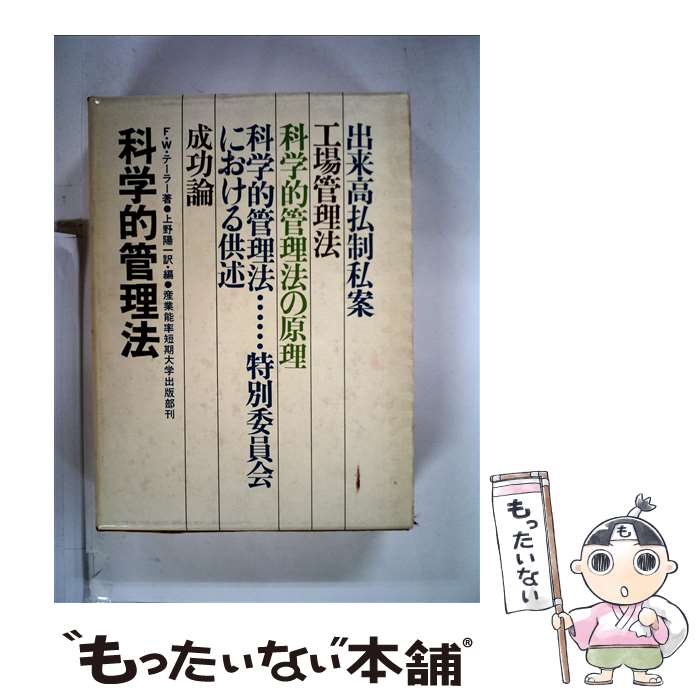 出来高払制私案
工場管理法
科学的管理法の原理
科学的管理法……特別委員会
における供述
成功論
F・W・テーラー著●上野陽一訳・編●産業能率短期大学出版部刊
科学的管理法
もったいない
も
"もったいない"本舗®